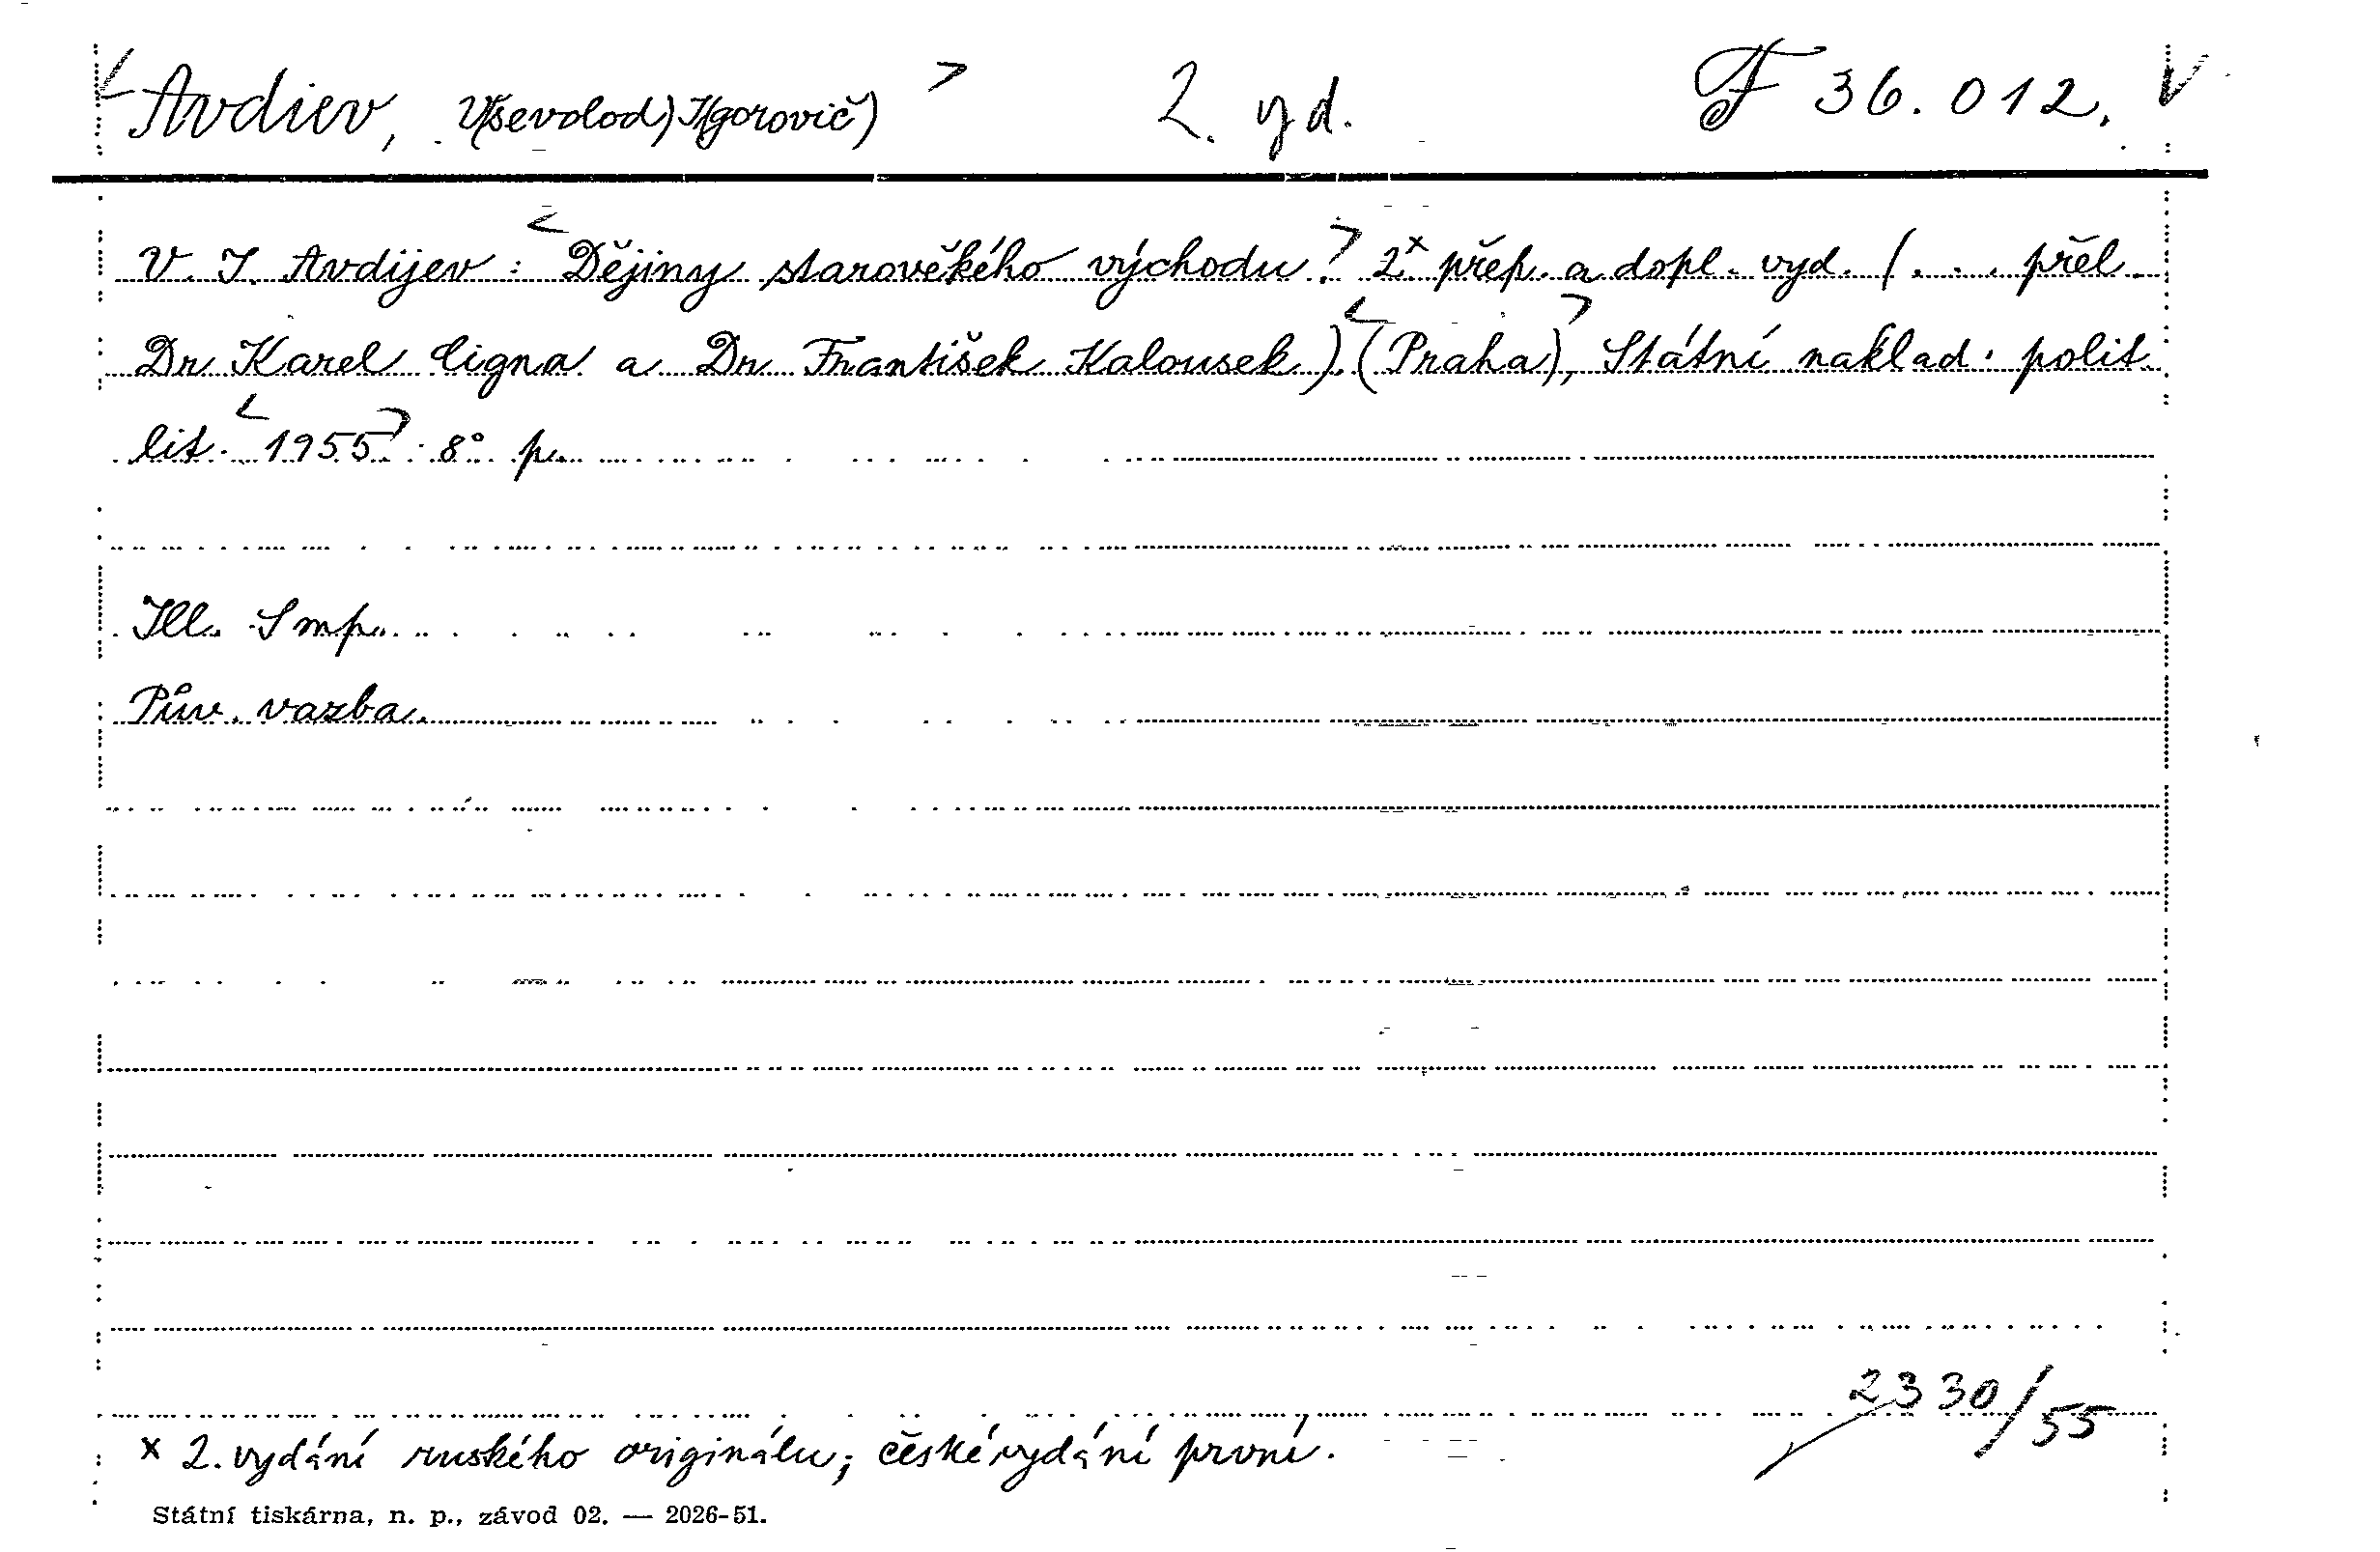 <Avdiev, V(sevolod) I(gorovič)> 2. vyd. F 36.012. V
V. I. Avdijev: <Dějiny starověkého východu> 2x přep. a dopl. vyd. (... přel.
Dr Karel Cigna a Dr František Kalousek). <(Praha)>, Státní naklad. polit.
lit. <1955>. 8° p.
Ill. Imp.
Pův. vazba.
2330/55
x 2. vydání ruského originálu; české vydání první.
Státní tiskárna, n. p., závod 02. — 2026-51.